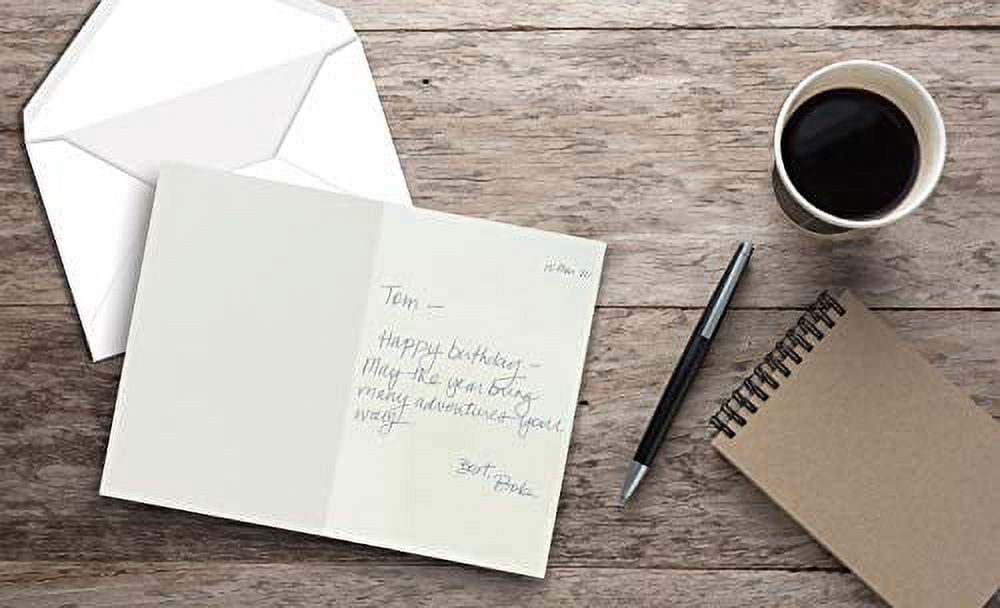 Tom —
Happy birthday —
May the year bring
many adventures your
way.
Best,